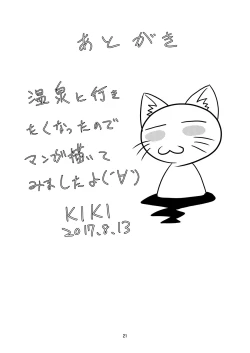 あとがき
温泉に行き
たくなったので
マンガ描いて
みましたよ(´∀`)
KIKI
2017.8.13
21